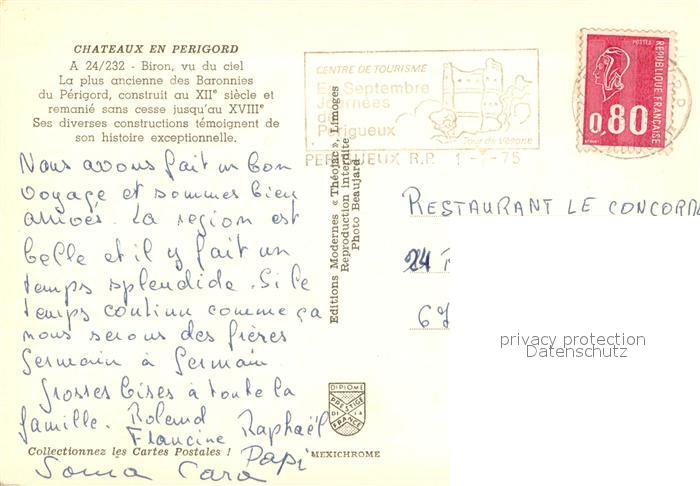 CHATEAUX EN PERIGORD
A 24/232 - Biron, vu du ciel
La plus ancienne des Baronnies
du Périgord, construit au XIIe siècle et
remanié sans cesse jusqu'au XVIIIe
Ses diverses constructions témoignent de
son histoire exceptionnelle.
Nous avons fait un bon
voyage et sommes bien
arrivés. La region est
belle et il y fait un
temps splendide. Si le
temps continu comme ça
nous serons des frères
Germain à Germain.
Grosses bises à toute la
famille. Roland
Francine Raphaël
Papi
Sonia Cara
Collectionnez les Cartes Postales !
MEXICHROME
Editions Modernes « Théojac », Limoges
Reproduction Interdite
Photo Beaujard
DIPLOME
PRESTIGE
DE LA
FRANCE
CENTRE DE TOURISME
En Septembre
Journées
de
Périgueux
Tour de Vésone
PERIGUEUX R.P. 1 - 75
POSTES
REPUBLIQUE FRANÇAISE
0,80
RESTAURANT LE CONCORD
24
67
privacy protection
Datenschutz